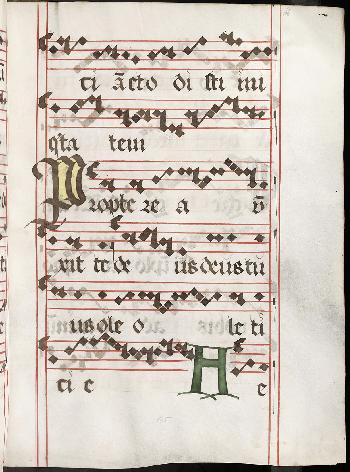 ci ācto di sti ini
qͥta tem
Propte re a v̄
xit te de us deus tu
us ole o le ti
ci e A e